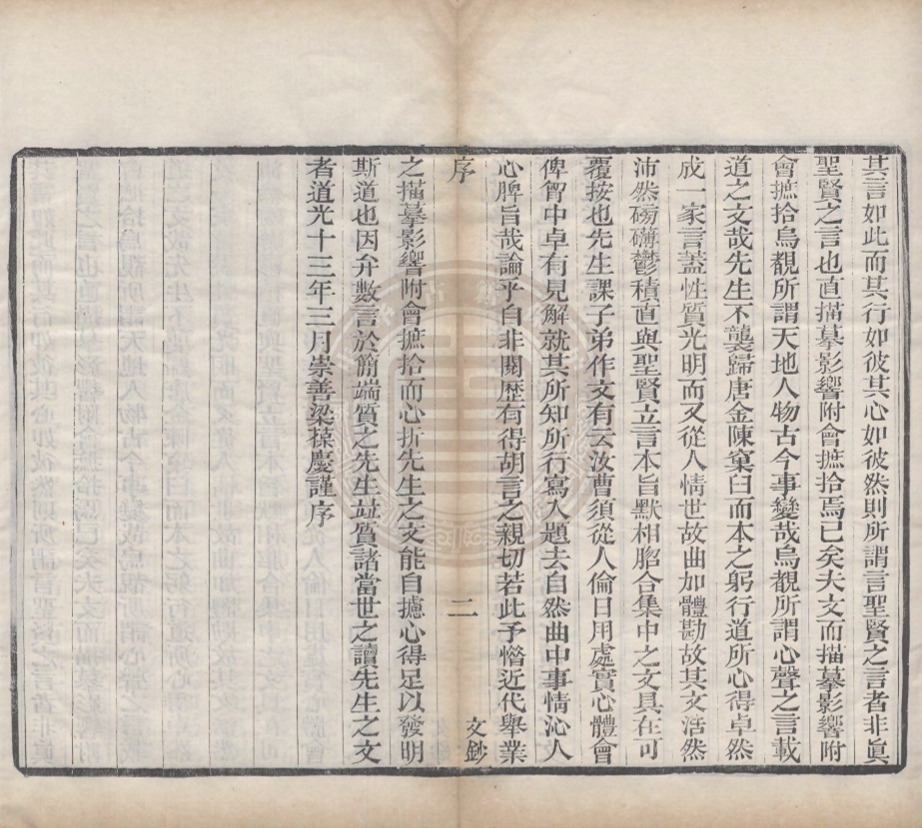 其言如此而其行如彼其心如彼然則所謂言聖賢之言者非眞
聖賢之言也直描摹影響附會摭拾焉已矣夫文而描摹影響附
會摭拾烏覩所謂天地人物古今事變哉烏覩所謂心聲之言載
道之文哉先生不襲歸唐金陳窠臼而本之躬行道所心得卓然
成一家言蓋性質光明而又從人情世故曲加體勘故其文活然
沛然磅礴鬱積直與聖賢立言本旨默相脗合集中之文具在可
覆按也先生課子弟作文有云汝曹須從人倫日用處實心體會
俾胷中卓有見解就其所知所行寫入題去自然曲中事情沁人
心脾旨哉論乎自非閱歷有得胡言之親切若此予懵近代舉業
序 二 文鈔
之描摹影響附會摭拾而心折先生之文能自攄心得足以發明
斯道也因弁數言於簡端質之先生並質諸當世之讀先生之文
者道光十三年三月崇善梁葆慶謹序